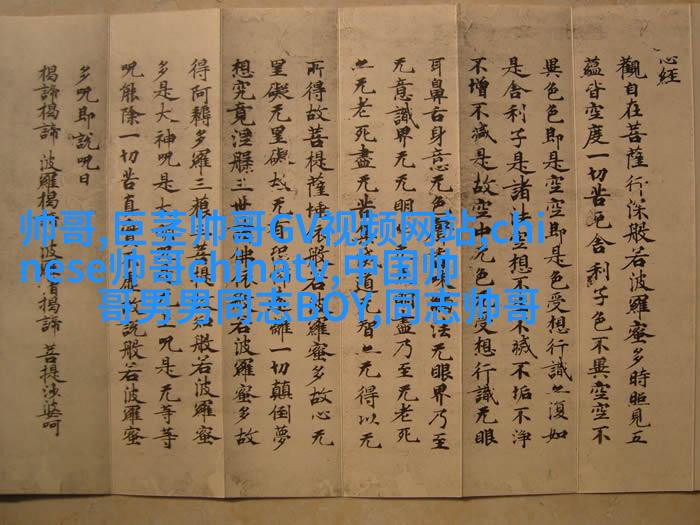 心经
觀自在菩薩行深般若波羅蜜多時照見五
蘊皆空度一切苦厄舍利子色不異空空不
異色色即是空空即是色受想行識亦復如
是舍利子是諸法空想不滅不垢不淨
不增不減是故空中无色受想行識无眼
耳鼻舌身意无色味法无眼界乃至
无意識界无无明盡乃至无老死
亦无老死盡无苦道无智亦无得以无
所得故菩提薩埵依般若波羅蜜多故心无
罣礙无罣礙故无離一切顛倒夢
想究竟涅槃三世佛依般若波羅蜜多故
得阿耨多羅三藐菩提般若波羅蜜
多是大神咒是大上咒是无等等
咒能除一切苦真故說般若波羅蜜
多咒即說咒曰
揭諦揭諦 波羅揭 波僧揭諦 菩提婆呵
帅哥,巨茎帅哥GV视频网站,chi
nese帅哥chinatv,中国帅
哥男男同志BOY,同志帅哥